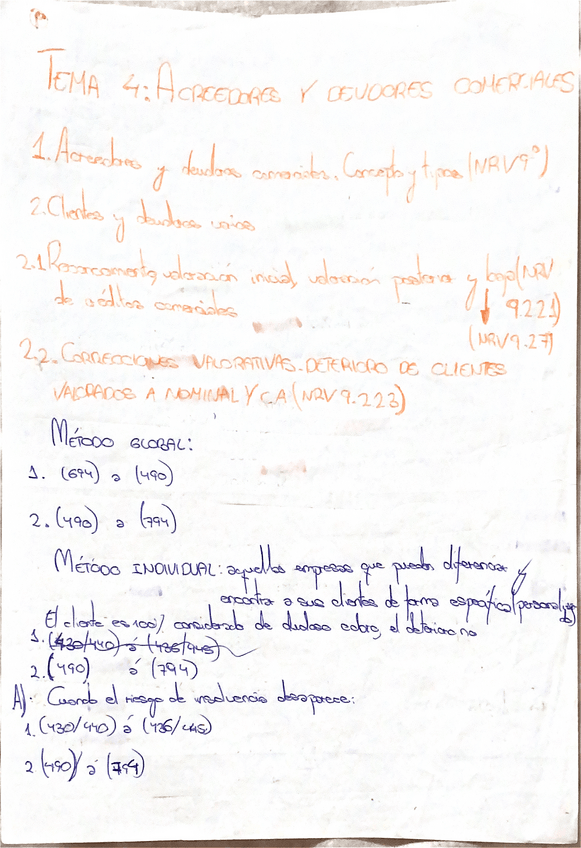 TEMA 4: ACREEDORES Y DEUDORES COMERCIALES
1. Acreedores y deudores comerciales. Concepto y tipos (NRV9º)
2. Clientes y deudores varios
2.1 Reconocimiento, valoración inicial, valoración posterior y baja (NRV
de créditos comerciales ↓ 9.221)
(NRV9.27)
2.2. CORRECCIONES VALORATIVAS. DETERIORO DE CLIENTES
VALORADOS A NOMINAL Y C.A (NRV 9.223)
MÉTODO GLOBAL:
1. (694) a (490)
2. (490) a (794)
MÉTODO INDIVIDUAL: aquellas empresas que pueden diferenciar y
encontrar a sus clientes de forma específica
El cliente es 100% considerado de dudoso cobro, el deterioro no
1. (430/440) a (436/445)
2. (490) a (794)
A). Cuando el riesgo de insolvencia desaparece:
1. (430/440) a (436/445)
2 (490) a (794)